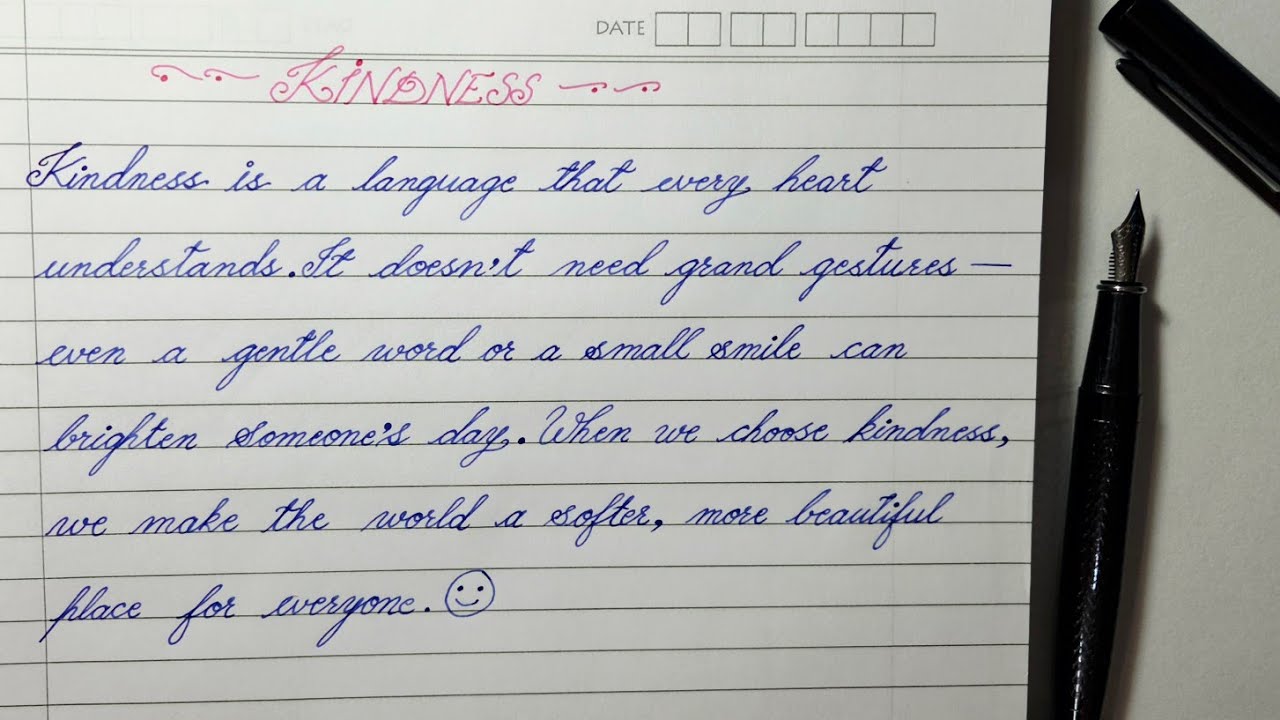 DATE
KINDNESS
Kindness is a language that every heart
understands. It doesn't need grand gestures —
even a gentle word or a small smile can
brighten someone's day. When we choose kindness,
we make the world a softer, more beautiful
place for everyone. ☺